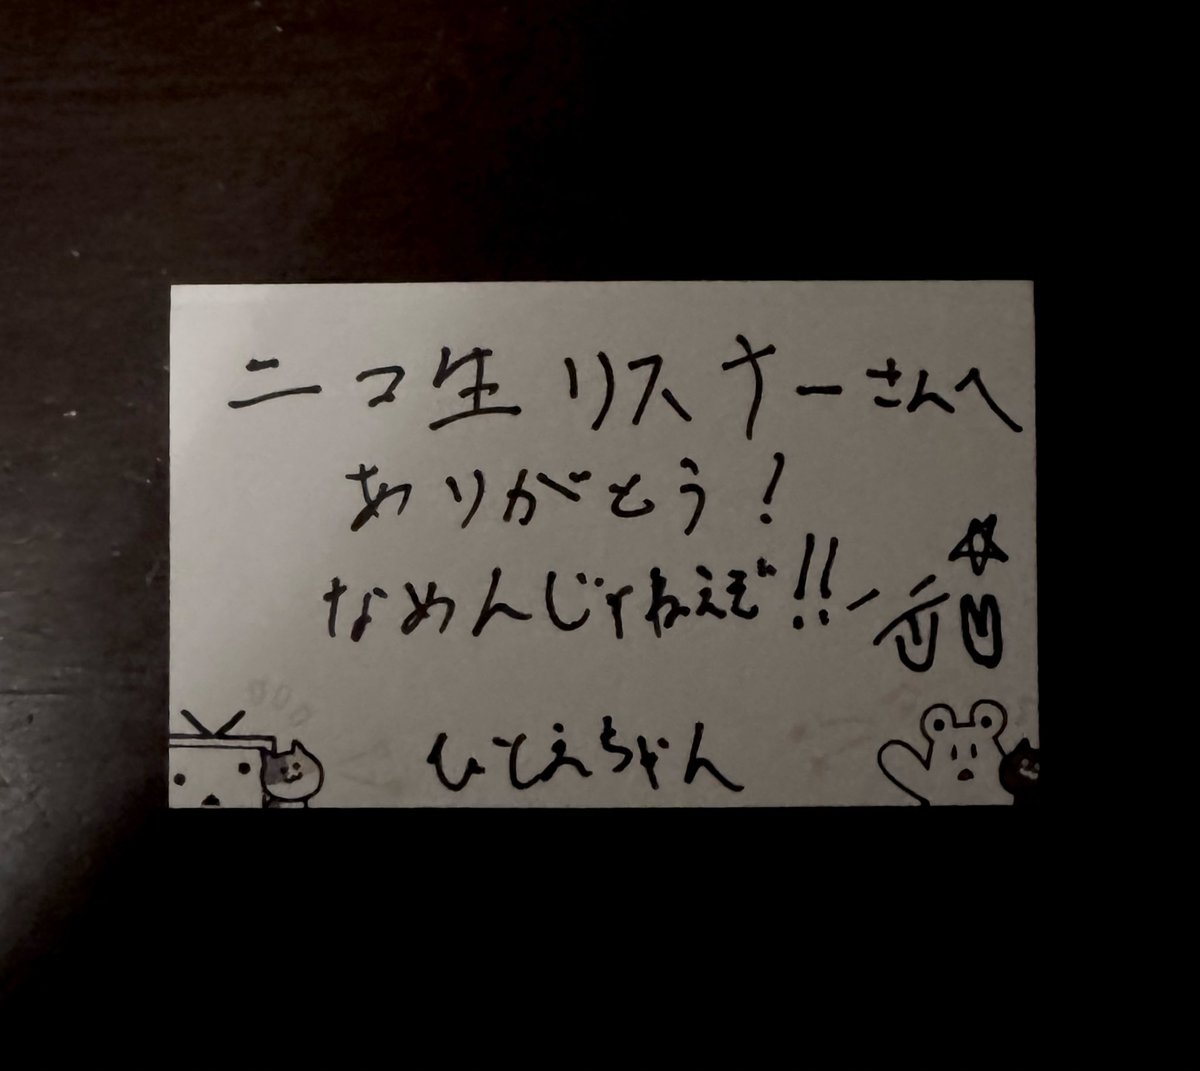 ニコ生リスナーさんへ
ありがとう!
なめんじゃねえぞ!!
ひとえちゃん